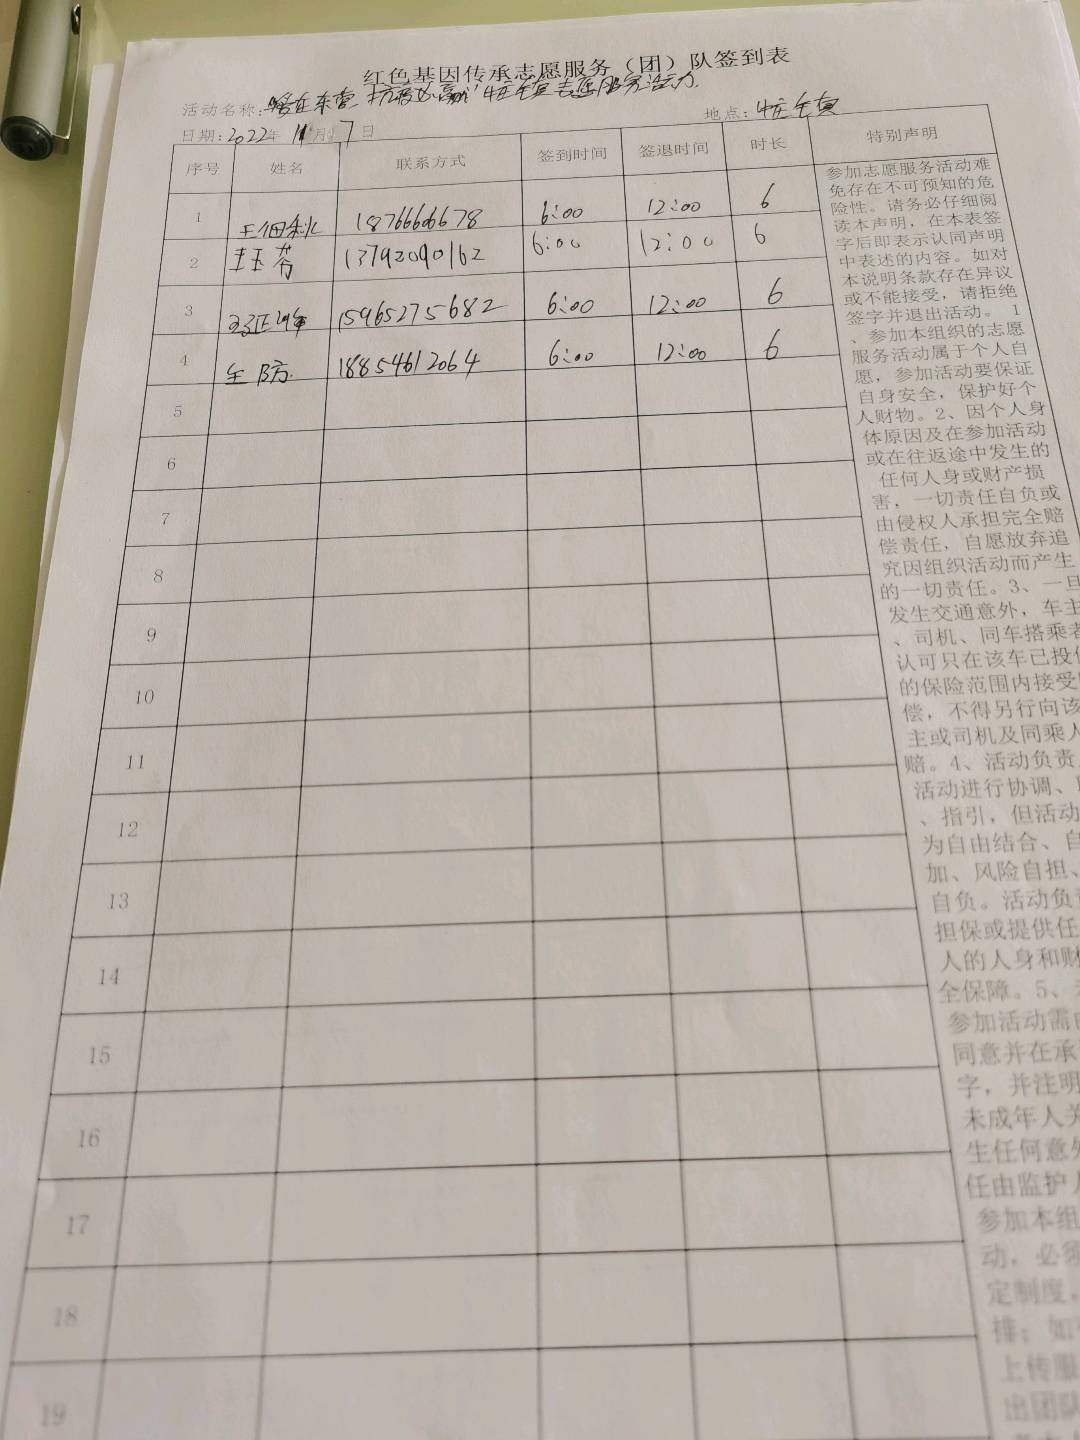 红色基因传承志愿服务（团）队签到表
活动名称：暖在东营 抗疫必赢 牛庄镇志愿服务活动
地点：牛庄镇
日期：2022年 11月 7日
序号 姓名 联系方式 签到时间 签退时间 时长 特别声明
1 18766606678 6:00 12:00 6
2 13792090162 6:00 12:00 6
3 15965275682 6:00 12:00 6
4 18854612064 6:00 12:00 6
5
6
7
8
9
10
11
12
13
14
15
16
17
18
19
参加志愿服务活动难
免存在不可预知的危
险性。请务必仔细阅
读本声明，在本表签
字后即表示认同声明
中表述的内容。如对
本说明条款存在异议
或不能接受，请拒绝
签字并退出活动。 1
、参加本组织的志愿
服务活动属于个人自
愿，参加活动要保证
自身安全，保护好个
人财物。2、因个人身
体原因及在参加活动
或在往返途中发生的
任何人身或财产损
害，一切责任自负或
由侵权人承担完全赔
偿责任，自愿放弃追
究因组织活动而产生
的一切责任。3、一旦
发生交通意外，车主
、司机、同车搭乘者
认可只在该车已投
的保险范围内接受
偿，不得另行向该
主或司机及同乘人
赔。4、活动负责
活动进行协调、
、指引，但活动
为自由结合、自
加、风险自担、
自负。活动负
担保或提供任
人的人身和财
全保障。5、
参加活动需
同意并在承
字，并注明
未成年人关
生任何意外
任由监护人
参加本组
动，必须
定制度，
排；如
上传服
出团队